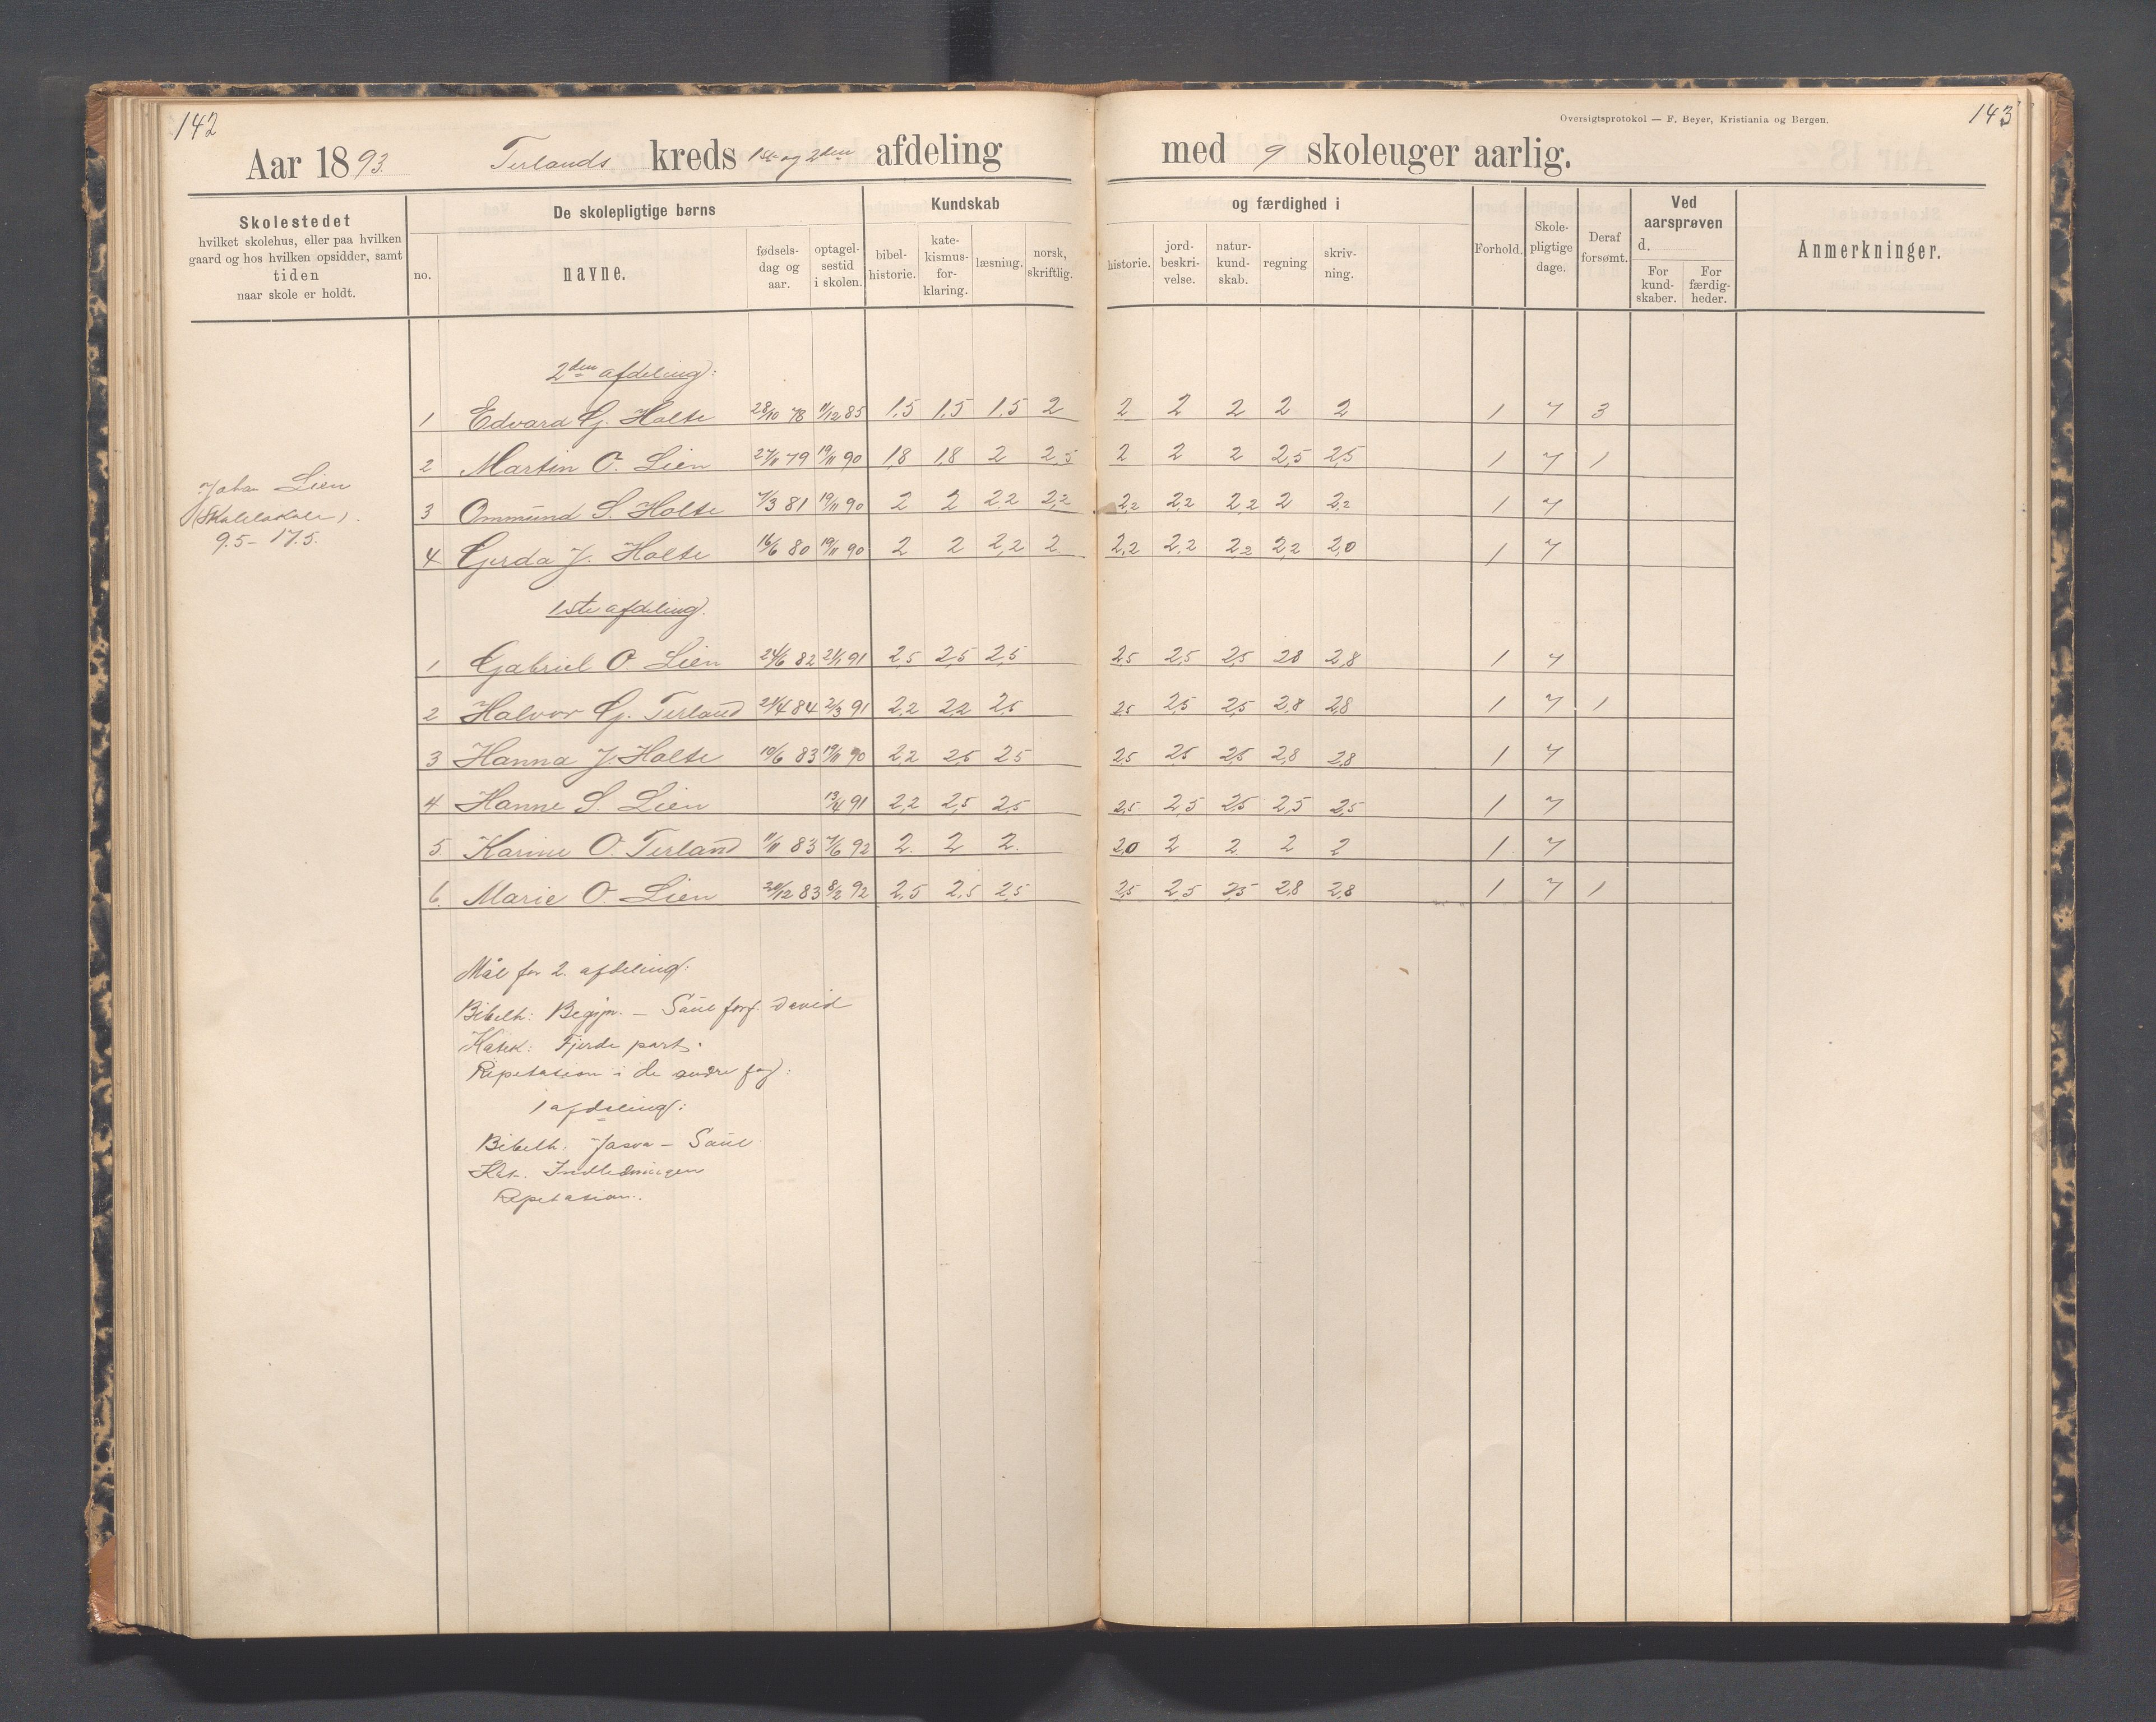 142
143
Oversigtsprotokol — F. Beyer, Kristiania og Bergen.
Aar 1893. Terlands kreds 1ste og 2den afdeling med 9 skoleuger aarlig.
Skolestedet
hvilket skolehus, eller paa hvilken
gaard og hos hvilken opsidder, samt
tiden
naar skole er holdt.
De skolepligtige børns
no.
navne.
fødsels-
dag og
aar.
optagel-
sestid
i skolen.
Kundskab
bibel-
historie.
kate-
kismus-
for-
klaring.
læsning.
norsk,
skriftlig.
og færdighed i
historie.
jord-
beskri-
velse.
natur-
kund-
skab.
regning
skriv-
ning.
Forhold.
Skole-
pligtige
dage.
Deraf
forsømt.
Ved
aarsprøven
d.
For
kund-
skaber.
For
færdig-
heder.
Anmerkninger.
2den afdeling:
1 Edvard G. Holte 28/10 78 11/12 85 1,5 1,5 1,5 2 2 2 2 2 2 1 7 3
2 Martin O. Lien 27/11 79 19/11 90 1,8 1,8 2 2,5 2 2 2 2,5 2,5 1 7 1
3 Ommund S. Holte 7/3 81 19/11 90 2 2 2,2 2,2 2,2 2,2 2,2 2 2,2 1 7
4 Gerda J. Holte 16/6 80 19/11 90 2 2 2,2 2 2,2 2,2 2,2 2,2 2,0 1 7
Johan Lien
9.5 - 17.5.
1ste afdeling.
1 Gabriel O. Lien 24/6 82 21/1 91 2,5 2,5 2,5 2,5 2,5 2,5 2,8 2,8 1 7
2 Halvor G. Terland 21/4 84 2/3 91 2,2 2,2 2,5 2,5 2,5 2,5 2,8 2,8 1 7 1
3 Hanna J. Holte 10/6 83 19/11 90 2,2 2,5 2,5 2,5 2,5 2,5 2,8 2,8 1 7
4 Hanne S. Lien 13/4 91 2,2 2,5 2,5 2,5 2,5 2,5 2,5 2,5 1 7
5 Karine O. Terland 11/11 83 7/6 92 2. 2 2. 2,0 2 2. 2 2 1 7
6. Marie O. Lien 20/12 83 8/2 92 2,5 2,5 2,5 2,5 2,5 2,5 2,8 2,8 1 7 1
Mål for 2. afdeling:
Bibelh: Begyn. — Saul forf. David
Katek: Fjerde part.
Repetasion i de andre fag:
1 afdeling:
Bibelh. Josva — Saul
Kat. Indledningen
Repetasion.